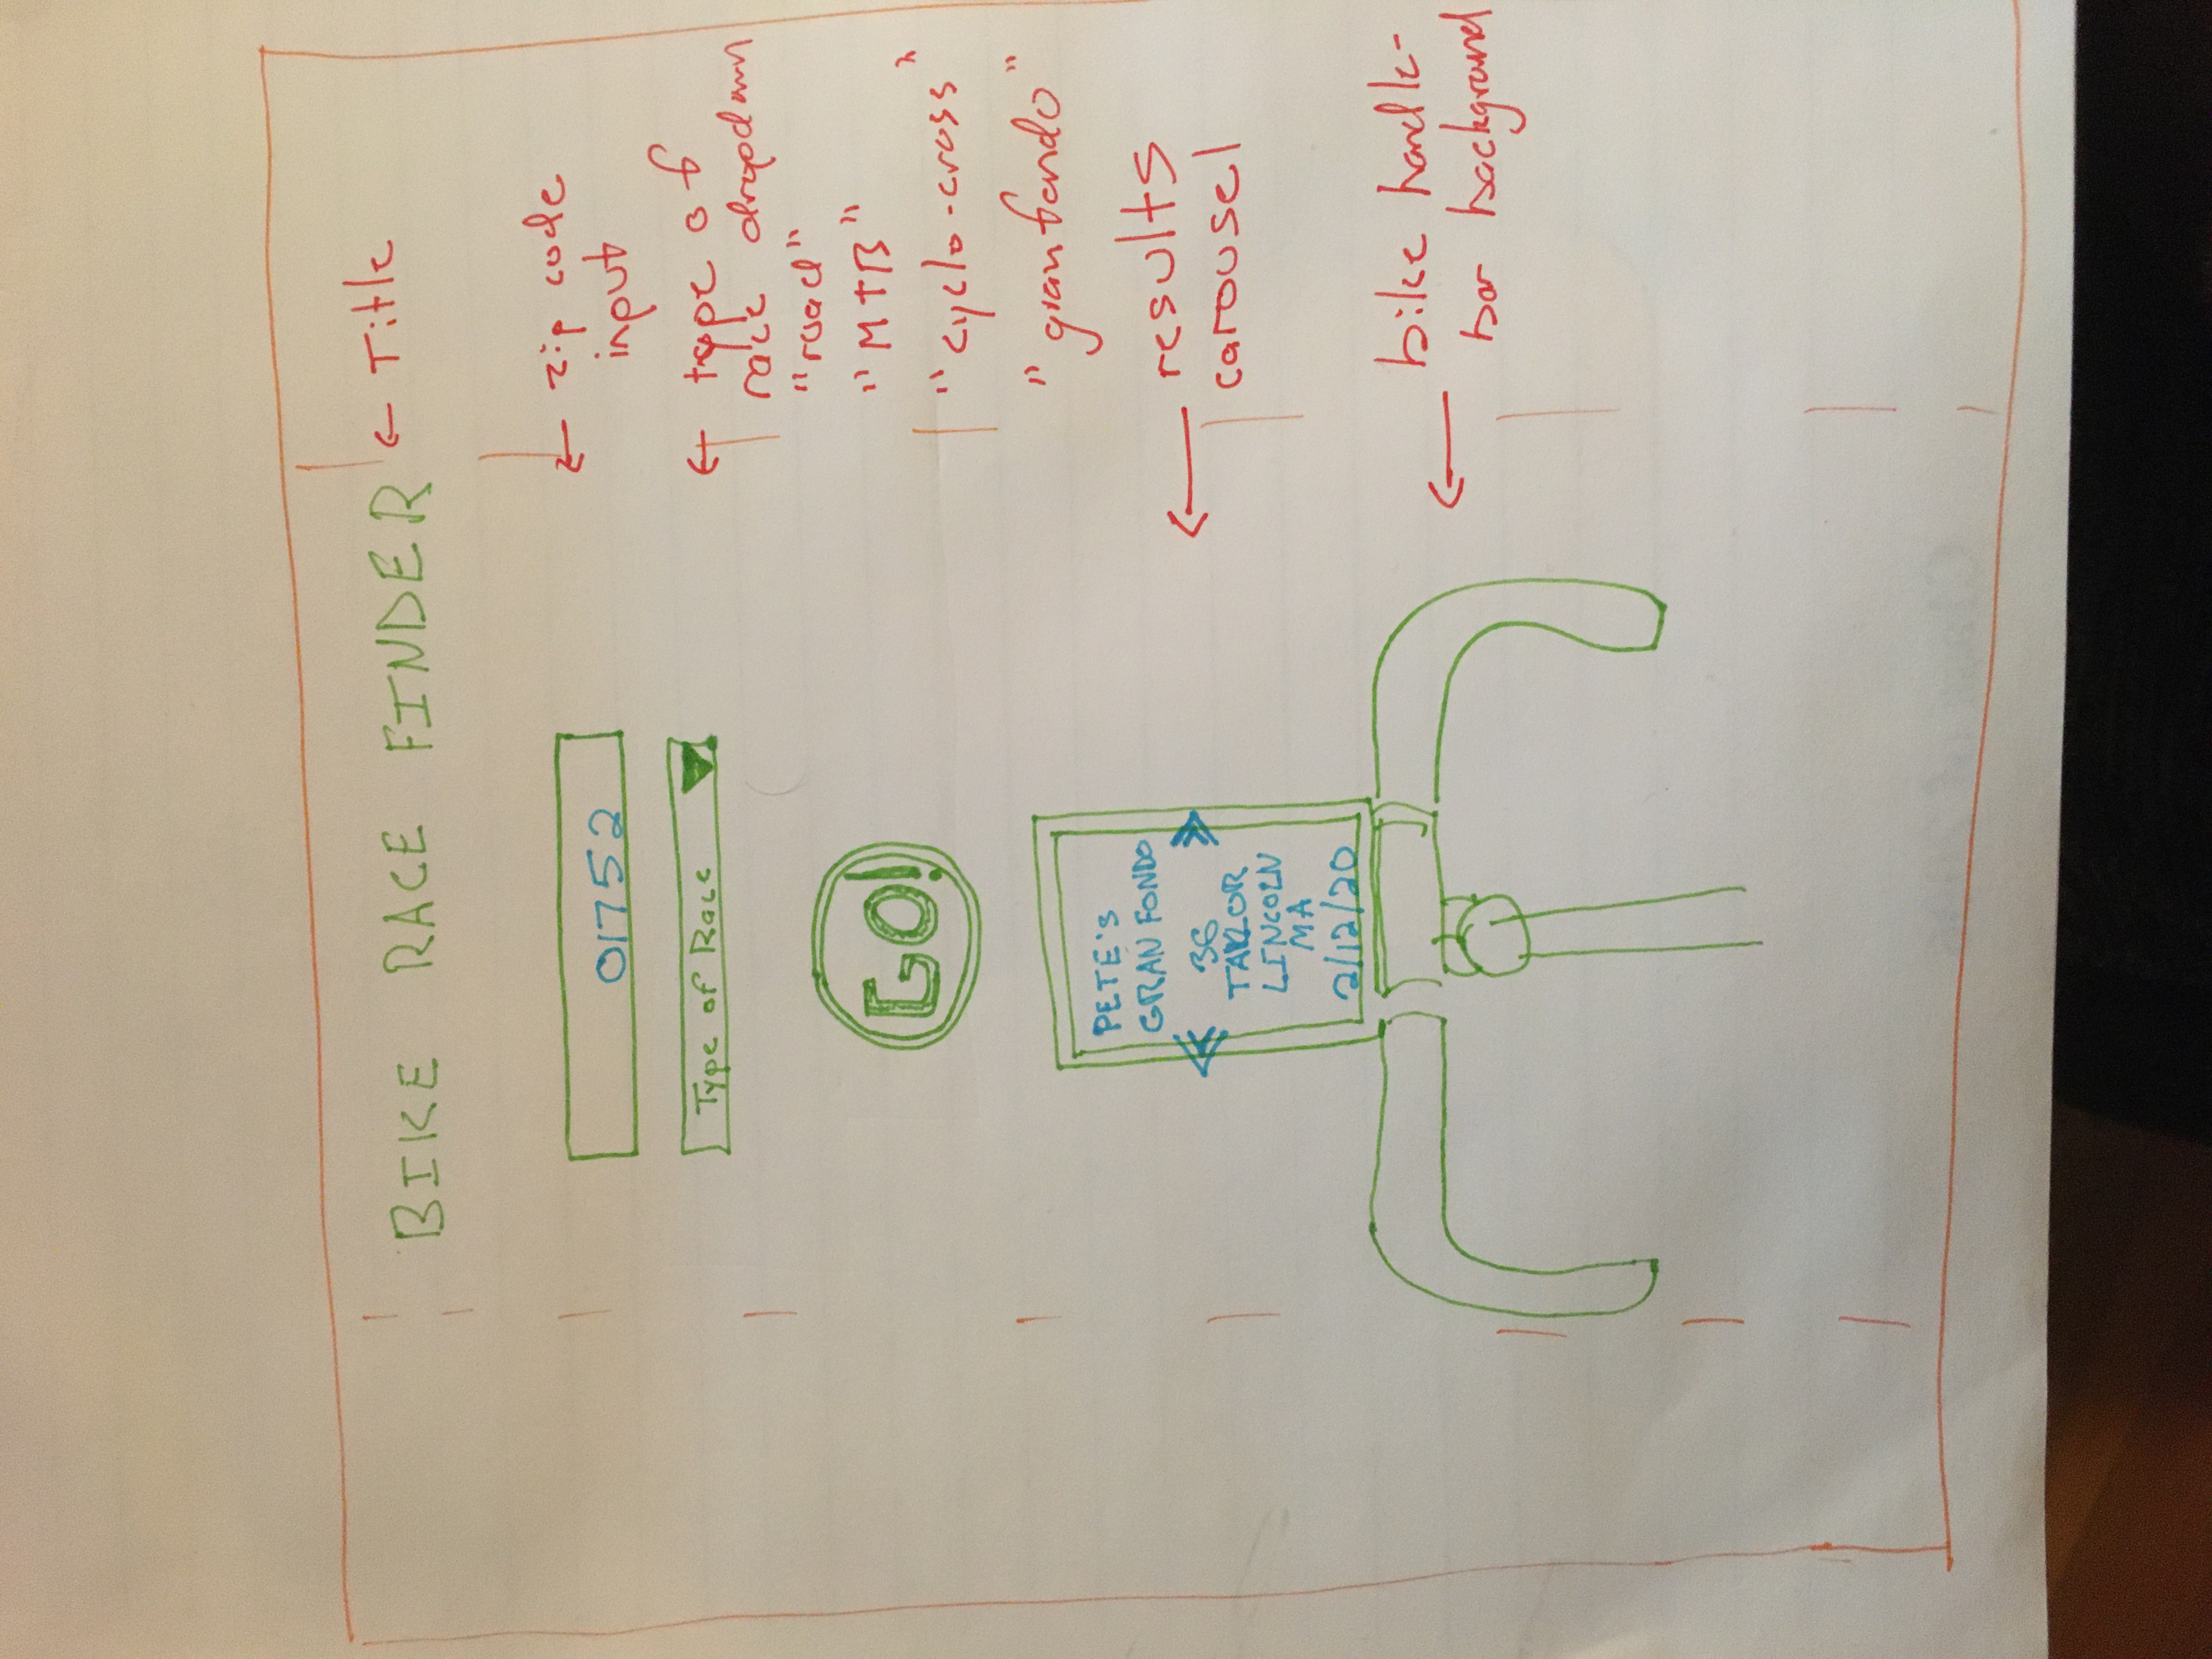 BIKE RACE FINDER
← Title
01752
← zip code
input
Type of Race
← type of
race dropdown
"road"
"MTB"
"cyclo-cross"
"granfondo"
GO!
PETE'S
GRAN FONDO
36
TAYLOR
LINCOLN
MA
2/12/20
← results
carousel
← bike handle-
bar background